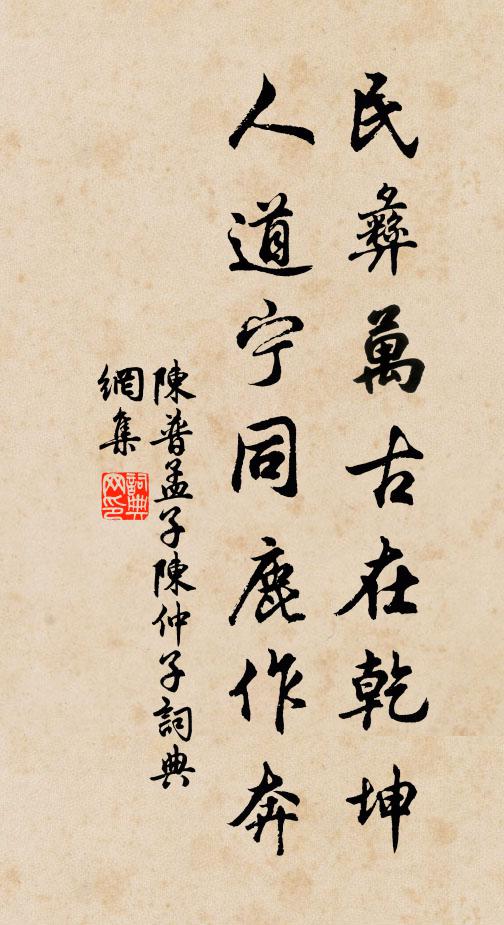 民彝萬古在乾坤
人道宁同鹿作奔
陳普孟子陳仲子詞典
網集
詞典
网印